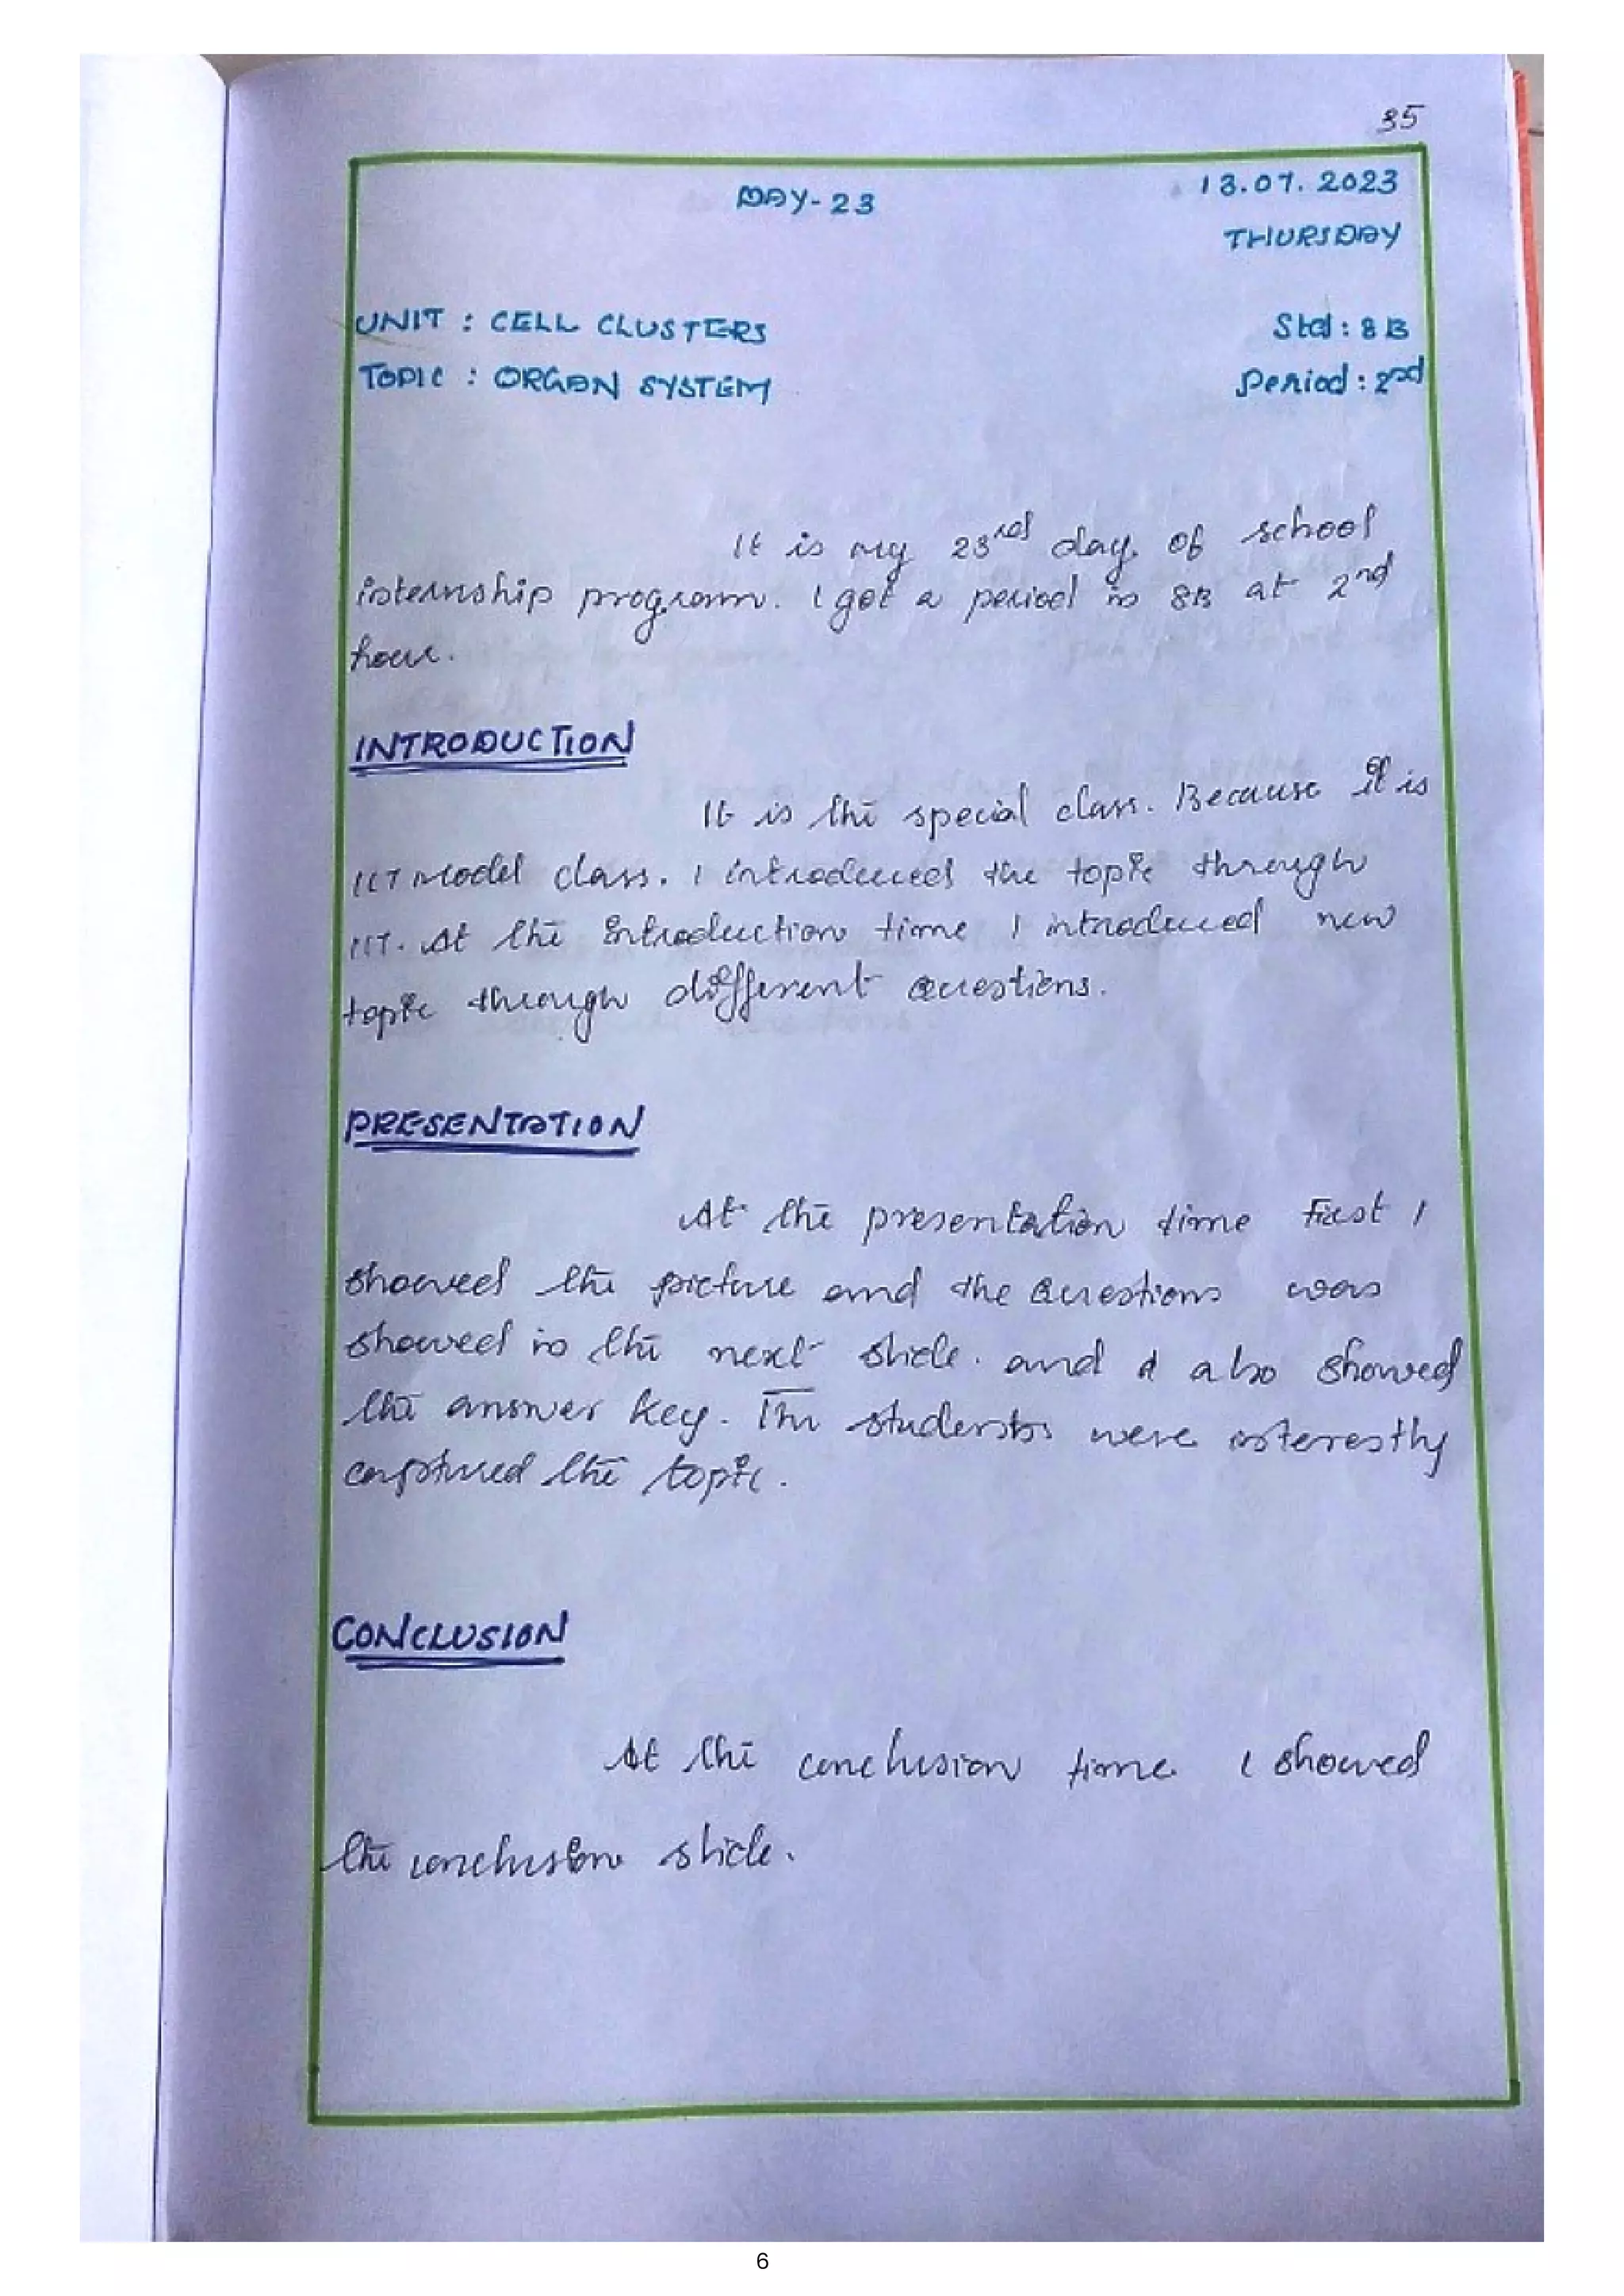 35
DAY-23
13.07.2023
THURSDAY
UNIT : CELL CLUSTERS
Std : 8 B
TOPIC : ORGAN SYSTEM
Period : 2nd
It is my 23rd day of school
internship program. I got a period in 8B at 2nd
hour.
INTRODUCTION
It is the special class. Because it is
ICT model class. I introduced the topic through
ICT. At the introduction time I introduced new
topic through different questions.
PRESENTATION
At the presentation time First I
showed the picture and the Questions was
showed in the next slide. and I also showed
the answer key. The students were interestly
captured the topic.
CONCLUSION
At the conclusion time I showed
the conclusion slide.
6